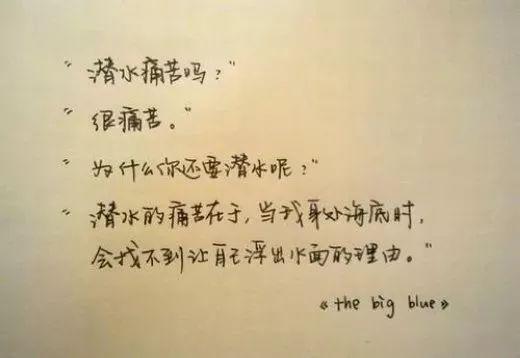 “潜水痛苦吗？”
“很痛苦。”
“为什么你还要潜水呢？”
“潜水的痛苦在于，当我身处海底时，
会找不到让自己浮出水面的理由。”
《the big blue》